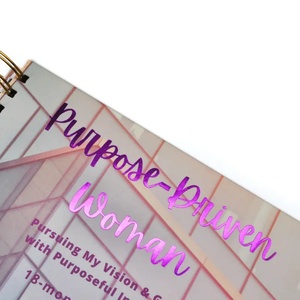 Purpose-Driven
Woman
Pursuing My Vision &
with Purposeful